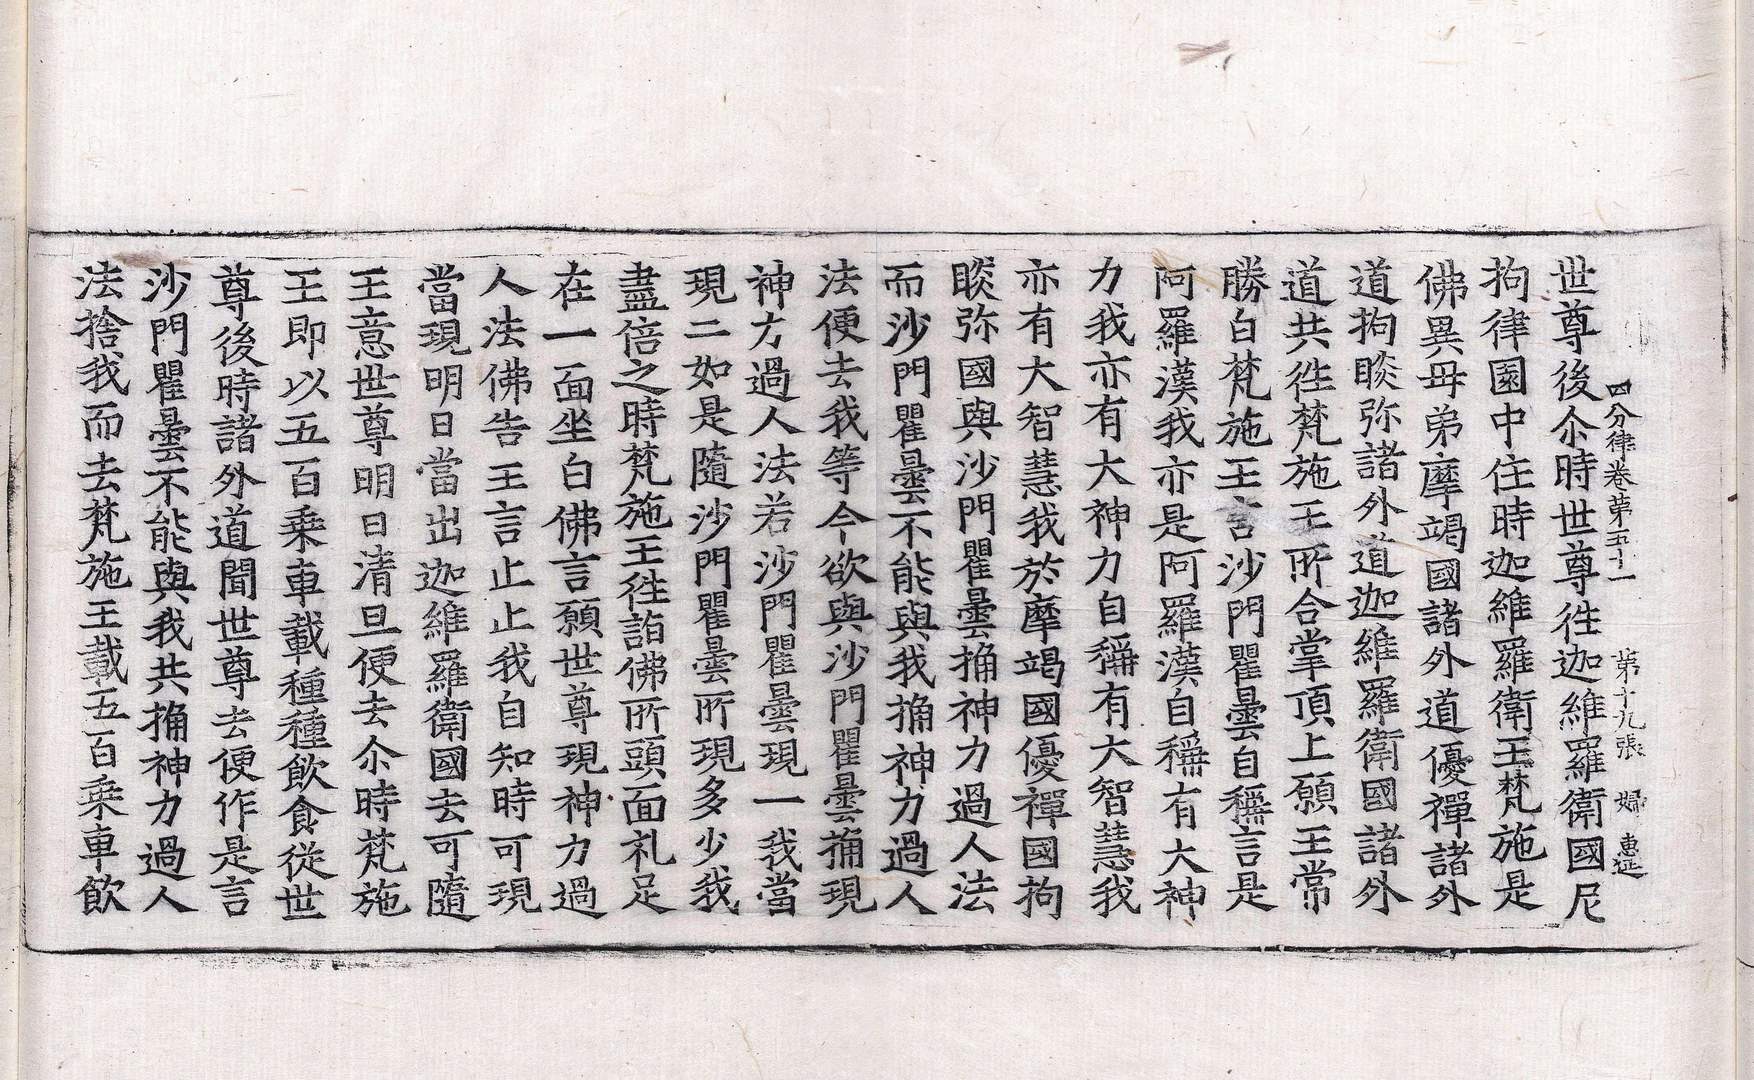 四分律卷第五十一　第十九張　婦　惠延
世尊後尒時世尊徃迦維羅衛國尼
拘律園中住時迦維羅衛王梵施是
佛異母弟摩竭國諸外道優禪諸外
道拘睒弥諸外道迦維羅衛國諸外
道共徃梵施王所合掌頂上願王常
勝白梵施王言沙門瞿曇自稱言是
阿羅漢我亦是阿羅漢自稱有大神
力我亦有大神力自稱有大智慧我
亦有大智慧我於摩竭國優禪國拘
睒弥國與沙門瞿曇捔神力過人法
而沙門瞿曇不能與我捔神力過人
法便去我等今欲與沙門瞿曇捔現
神力過人法若沙門瞿曇現一我當
現二如是隨沙門瞿曇所現多少我
盡倍之時梵施王徃詣佛所頭面礼足
在一面坐白佛言願世尊現神力過
人法佛告王言止止我自知時可現
當現明日當出迦維羅衛國去可隨
王意世尊明日清旦便去尒時梵施
王即以五百乘車載種種飲食從世
尊後時諸外道聞世尊去便作是言
沙門瞿曇不能與我共捔神力過人
法捨我而去梵施王載五百乘車飲